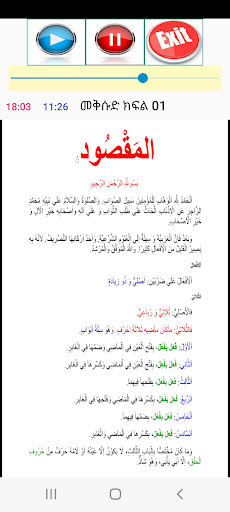 Exit
18:03 11:26 መቅሱድ ክፍል 01
المَقْصُود
بِسْمِ اللهِ الرَّحْمَنِ الرَّحِيمِ
الْحَمْدُ لِلَّهِ الْوَهَّابِ لِلْمُؤْمِنِينَ سَبِيلَ الصَّوَابِ. وَالصَّلَاةُ وَالسَّلَامُ عَلَى نَبِيِّهِ مُحَمَّدٍ
الزَّاجِرِ عَنِ الْأَذْنَابِ الْحَاثِّ عَلَى طَلَبِ الثَّوَابِ وَ عَلَى آلِهِ وَأَصْحَابِهِ خَيْرِ الْآلِ وَ
خَيْرِ الْأَصْحَابِ.
وَبَعْدُ فَإِنَّ الْعَرَبِيَّةَ وَسِيلَةٌ إِلَى الْعُلُومِ الشَّرْعِيَّةِ، وَأَحَدُ أَرْكَانِهَا التَّصْرِيفُ، لِأَنَّهُ بِهِ
يَصِيرُ الْقَلِيلُ مِنَ الْأَفْعَالِ كَثِيرًا. وَاللهُ الْمُوَفِّقُ وَالْمُرْشِدُ.
الأفعال
الْأَفْعَالُ عَلَى ضَرْبَيْنِ: أَصْلِيٌّ وَ ذُو زِيَادَةٍ
فَالْأَصْلِيُّ: ثُلَاثِيٌّ وَ رُبَاعِيٌّ.
فَالثُّلَاثِيُّ: مَاكَانَ مَاضِيهِ ثَلَاثَةَ أَحْرُفٍ. وَهُوَ سِتَّةُ أَبْوَابٍ.
الْأَوَّلُ: فَعَلَ يَفْعُلُ، بِفَتْحِ الْعَيْنِ فِي الْمَاضِي وَضَمِّهَا فِي الْغَابِرِ.
الثَّانِي: فَعَلَ يَفْعِلُ، بِفَتْحِ الْعَيْنِ فِي الْمَاضِي وَكَسْرِهَا فِي الْغَابِرِ.
الثَّالِثُ: فَعَلَ يَفْعَلُ، بِفَتْحِهَا فِيهِمَا.
الرَّابِعُ: فَعِلَ يَفْعَلُ، بِكَسْرِهَا فِي الْمَاضِي وَفَتْحِهَا فِي الْغَابِرِ.
الْخَامِسُ: فَعُلَ يَفْعُلُ، بِضَمِّهَا فِيهِمَا.
السَّادِسُ: فَعِلَ يَفْعِلُ، بِكَسْرِهَا فِي الْمَاضِي وَالْغَابِرِ.
وَمَا كَانَ مُخْتَصًّا بِالْبَابِ الثَّالِثِ، لَا يَكُونُ إِلَّا عَيْنُهُ أَوْ لَامُهُ حَرْفٌ مِنْ حُرُوفِ
الْحَلْقِ، إِلَّا أَبَى يَأْبَى، وَهُوَ شَاذٌّ.